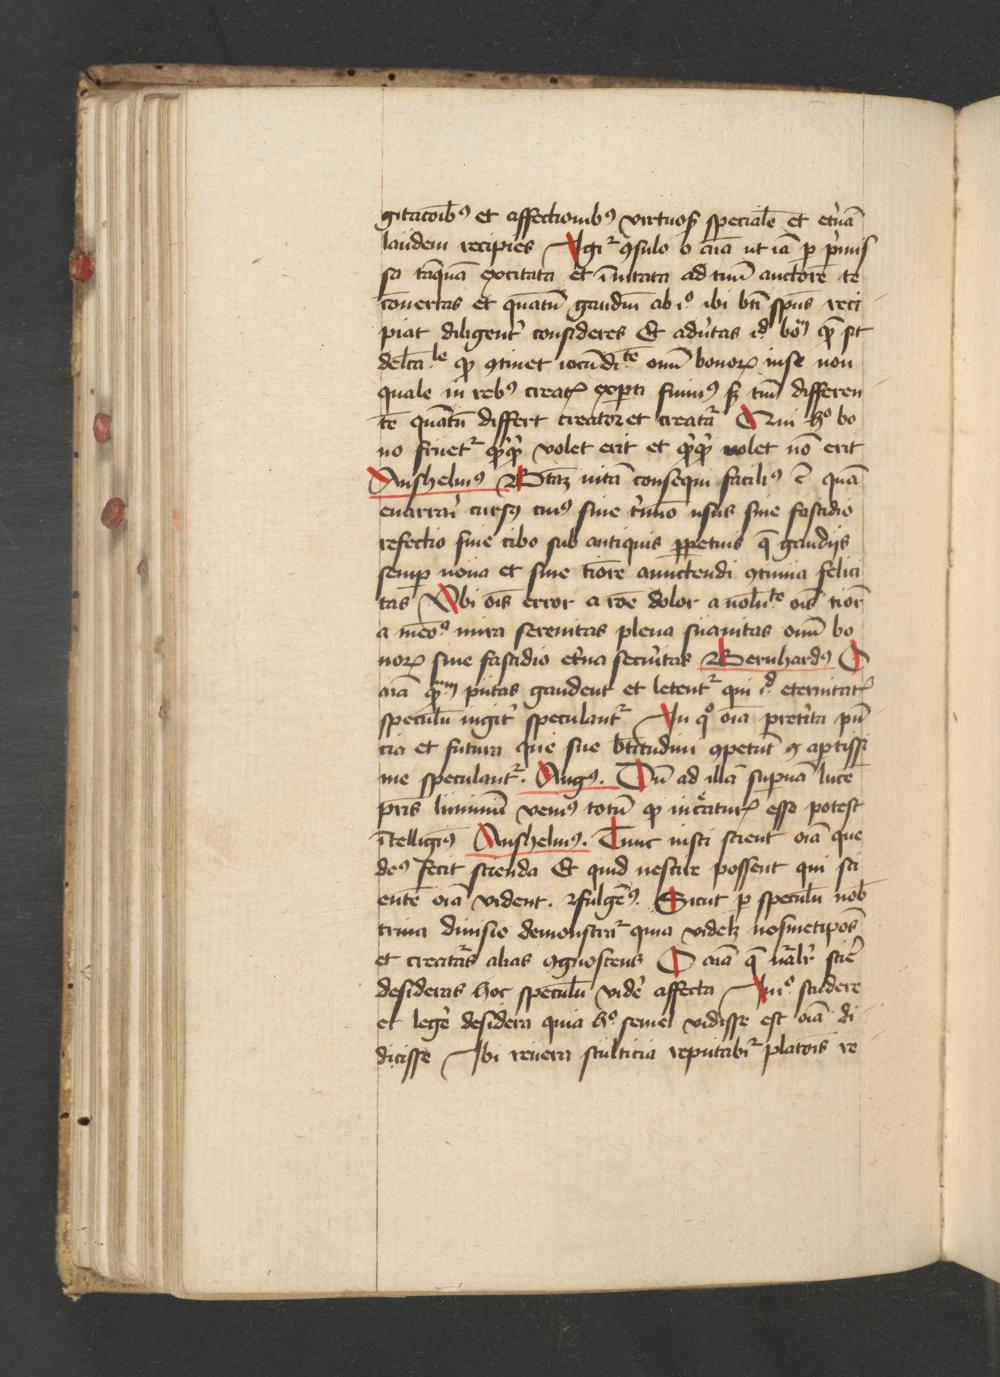 gitacoib⁹ et affectionib⁹ virtuos speciale et et'nā
laudem recipies Igit² ꝯsulo o aīa ut iā p p'mis
sa tāquā excitata et īuitata ad tuū auctorē te
cōuertas et quātū gaudiū ab i° ibi bti spūs reci
piat diligent' consideres Et adu'tas id bo qͥ sit
delcāle qͥ ꝯtinet iocūdite oīm bonoꝝ in se non
quale in reb⁹ creatꝭ exp̄ti sumus sꝫ tm̄ differen
te quātū differt creator et creatā Qui h° bo
no fruet² qͥqͥ volet erit et qͥqͥ nolet nō erit
Anshelm⁹ Btāꝫ uitā consequi facili⁹ ē quā
enarrar' cuiꝰ cui⁹ sine t'mīo usus sine fastidio
refectio sine cibo sub antiquis ꝑpetuis qꝫ gaudijs
semp noua et sine tiōre amittendi ꝯtinua felici
tas Vbi oīs error a rōe dolor a uolūte oīs tior
a meōᵃ mira serenitas plena suauitas oīm bo
noꝝ sine fastidio et'na secu'itas Bernhard⁹ O
aīa qͣm pūtas gaudent et letent² qui id eternitatꝭ
speculū iugit' speculant² In q° oīa pret'ita pn̄
cia et futura que sue btitudini ꝯpetūt ꝯ aptissi
me speculant². Aug⁹. Cū ad illā supnā luce
pris luminū veni⁹ totū qͥ in creaturꝭ esse potest
ītelligi⁹ Anshelm⁹. Tunc iusti scient oīa que
de⁹ fecit scienda Et quid nescire possent qui sci
entē oīa vident. Rfulgē⁹. Sicut p speculū nob
trina diuisio demonstrat² quia videlꝫ nosmetipos
et creatūs alias ꝯgnoscens O aīa qͣ nālr' scie
desideras hoc speculū vide' affecta In i° studere
et lege' desidera quia h° semel vidisse est oīa di
dicisse Ibi reuera stulticia reputabit² platois re